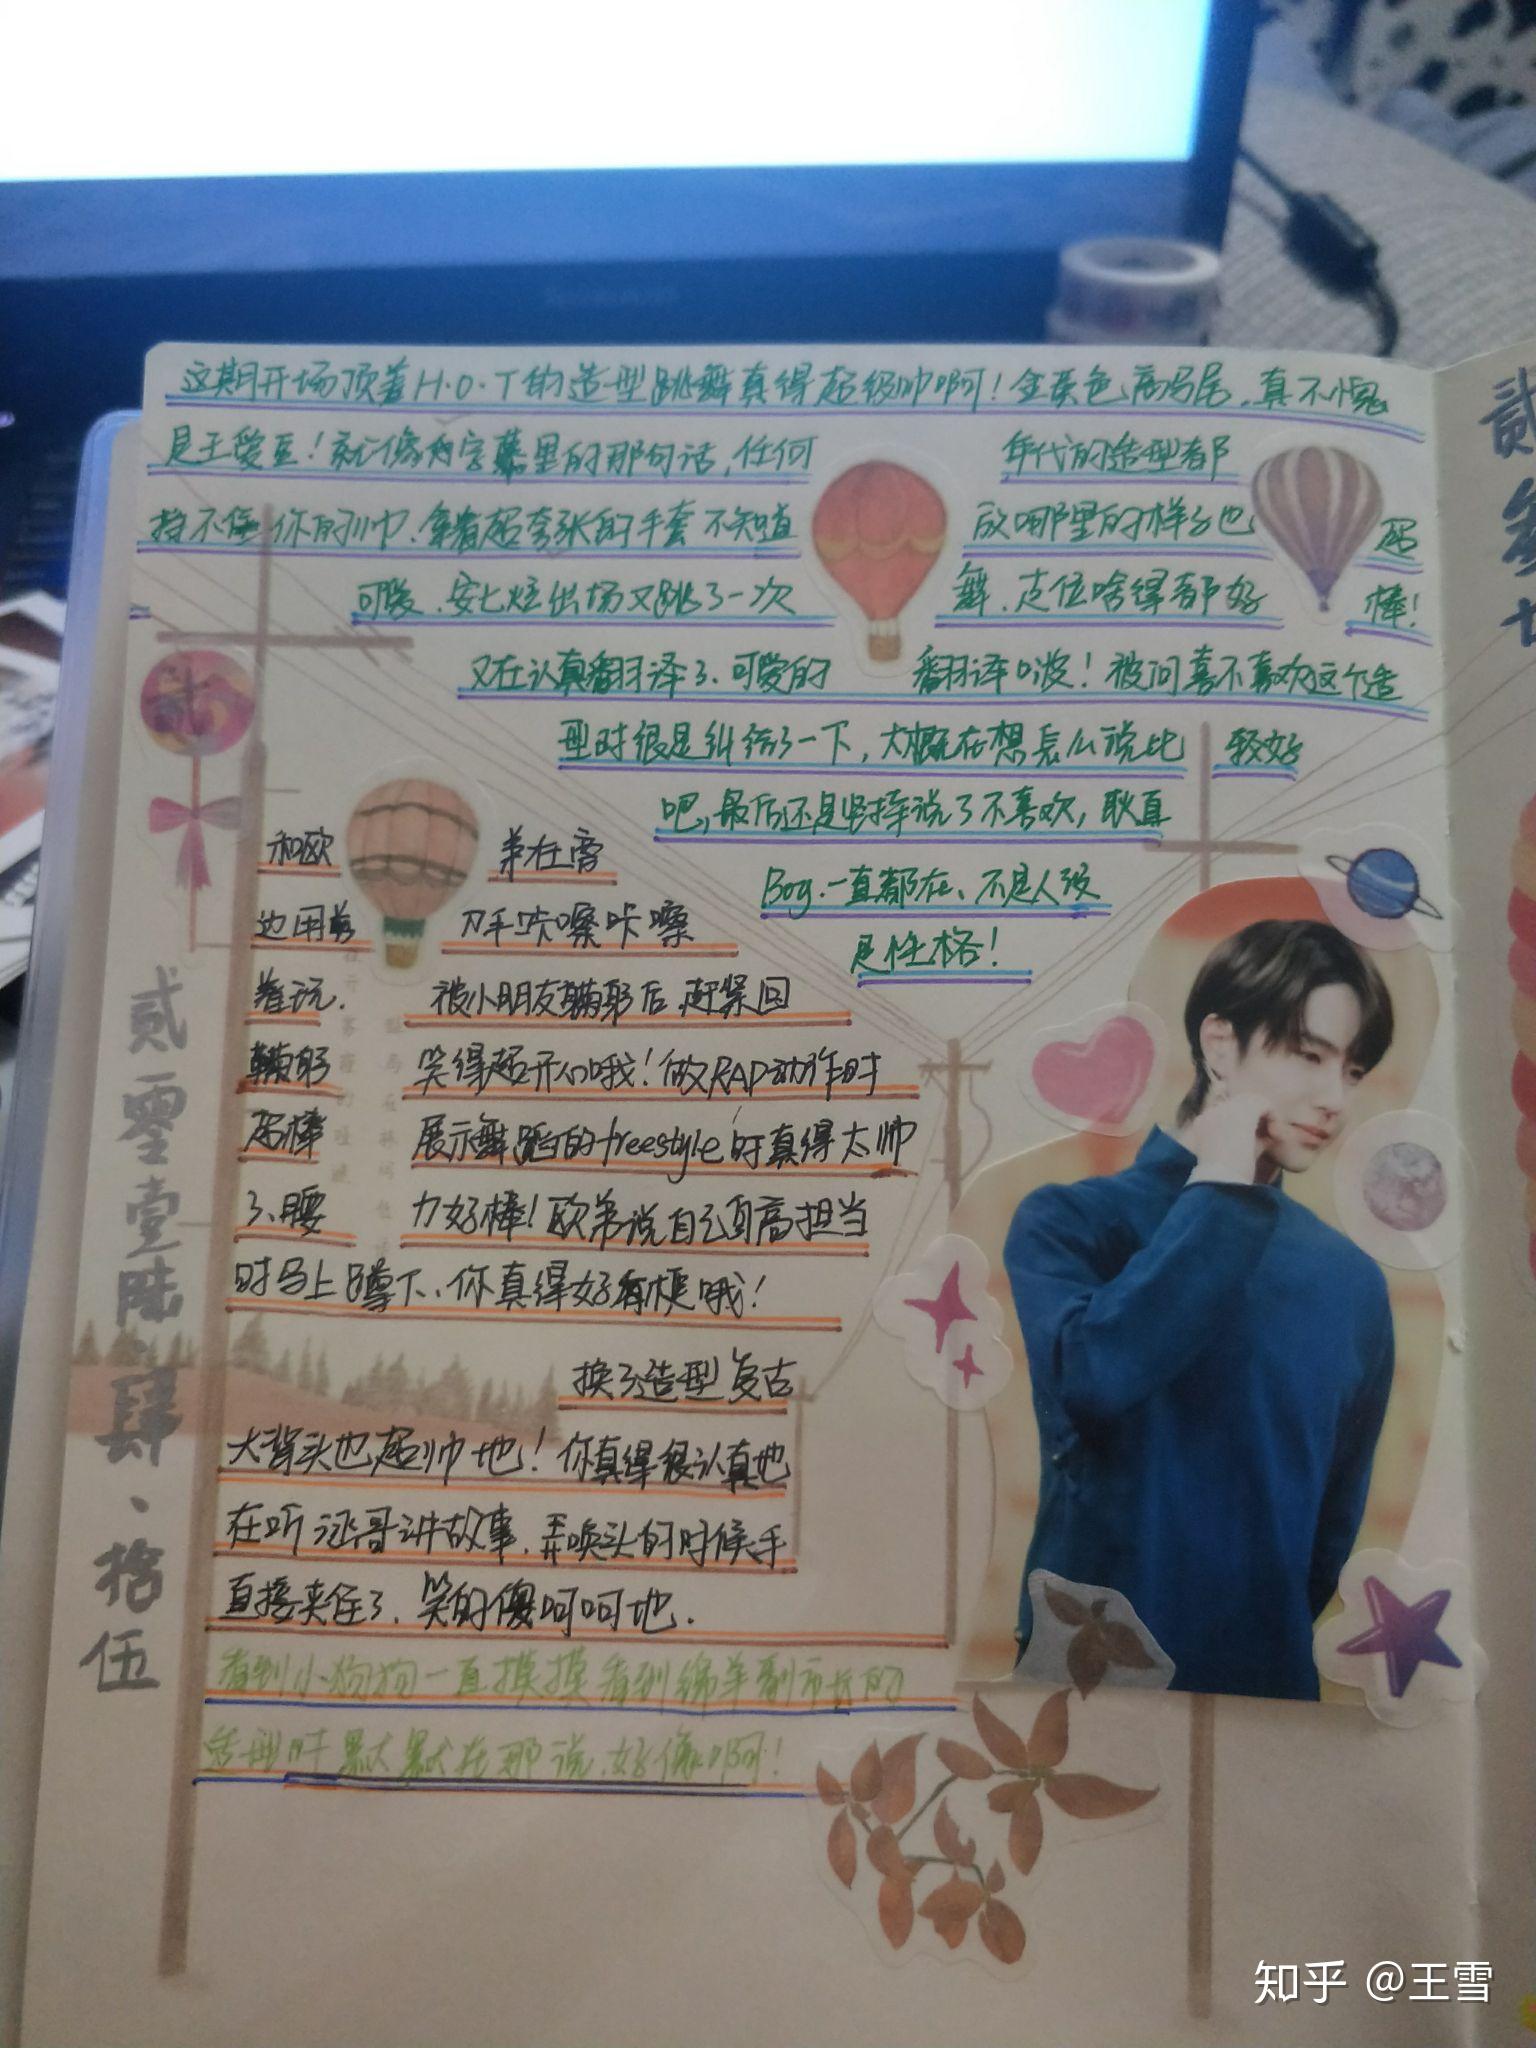 这期开场顶着H·O·T的造型跳舞真得超级帅啊！金黄色高马尾，真不愧
是王爱豆！就像字幕里的那句话，任何年代的造型都
挡不住你的帅、拿着超夸张的手套不知道放哪里的样子也超
可爱、安七炫出场又跳了一次舞、走位啥得都好棒！
又在认真翻译了、可爱的翻译啵！被问喜不喜欢这个造
型时很是纠结了一下，大概在想怎么说比较好
吧，最后还是坚持说了不喜欢，耿直
Boy.一直都在、不是人设
是性格！
和欧弟在旁
边用剪刀手咔嚓咔嚓
着玩、被小朋友鞠躬后赶紧回
鞠躬笑得超开心哦！做RAP动作时
超棒展示舞蹈的freestyle时真得太帅
了、腰力好棒！欧弟说自己身高担当
时马上蹲下、你真得好有梗哦！
换了造型复古
大背头也超帅地！你真得很认真地
在听涵哥讲故事、弄喷头的时候手
直接夹住了、笑的傻呵呵地.
看到小狗狗一直摸摸看到绵羊副市长的
造型时默默在那说、好像啊！
贰零壹陆、肆、拾伍
贰零
知乎 @王雪